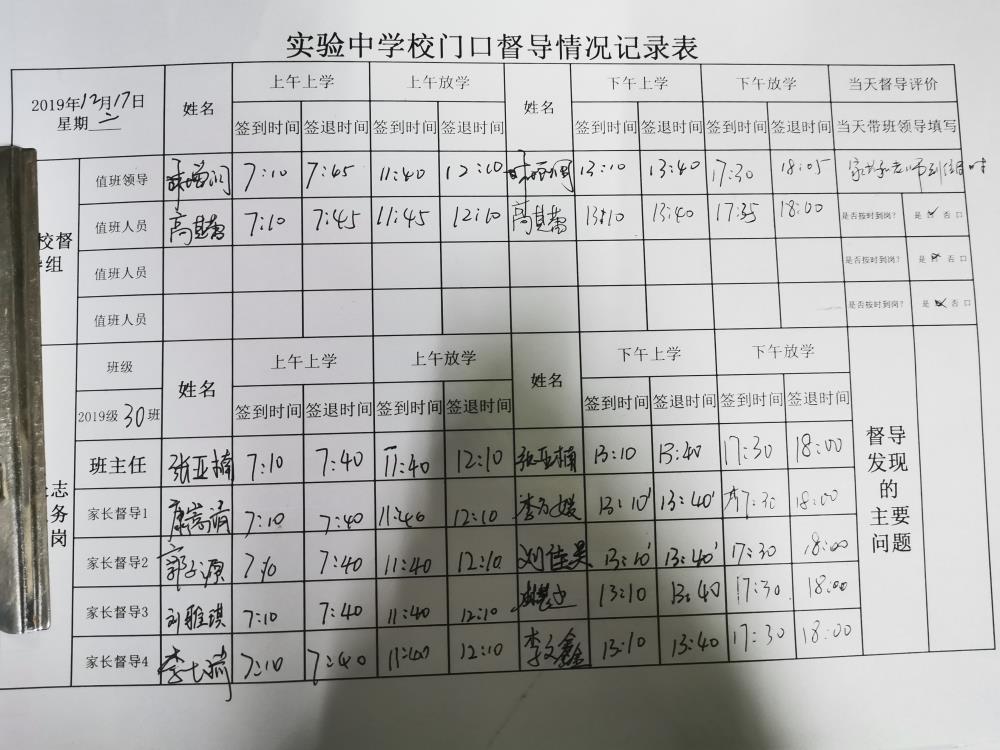 实验中学校门口督导情况记录表
2019年12月17日 星期二 姓名 上午上学 上午放学 姓名 下午上学 下午放学 当天督导评价
签到时间 签退时间 签到时间 签退时间 签到时间 签退时间 签到时间 签退时间 当天带班领导填写
值班领导 7:10 7:45 11:40 12:10 13:10 13:40 17:30 18:05
校督
组
值班人员 7:10 7:45 11:45 12:10 13:10 13:40 17:35 18:00 是否按时到岗? 是 否口
值班人员 是否按时到岗? 是 否口
值班人员 是否按时到岗? 是 否口
班级 姓名 上午上学 上午放学 姓名 下午上学 下午放学
2019级30班 签到时间 签退时间 签到时间 签退时间 签到时间 签退时间 签到时间 签退时间
督导
发现
的
主要
问题
志
务
岗
班主任 张亚楠 7:10 7:40 11:40 12:10 张亚楠 13:10 13:40 17:30 18:00
家长督导1 7:10 7:40 11:40 12:10 13:10 13:40 17:30 18:00
家长督导2 郭子源 7:10 7:40 11:40 12:10 刘佳昊 13:10 13:40 17:30 18:00
家长督导3 刘雅琪 7:10 7:40 11:40 12:10 13:10 13:40 17:30 18:00
家长督导4 7:10 7:40 11:40 12:10 李文鑫 13:10 13:40 17:30 18:00